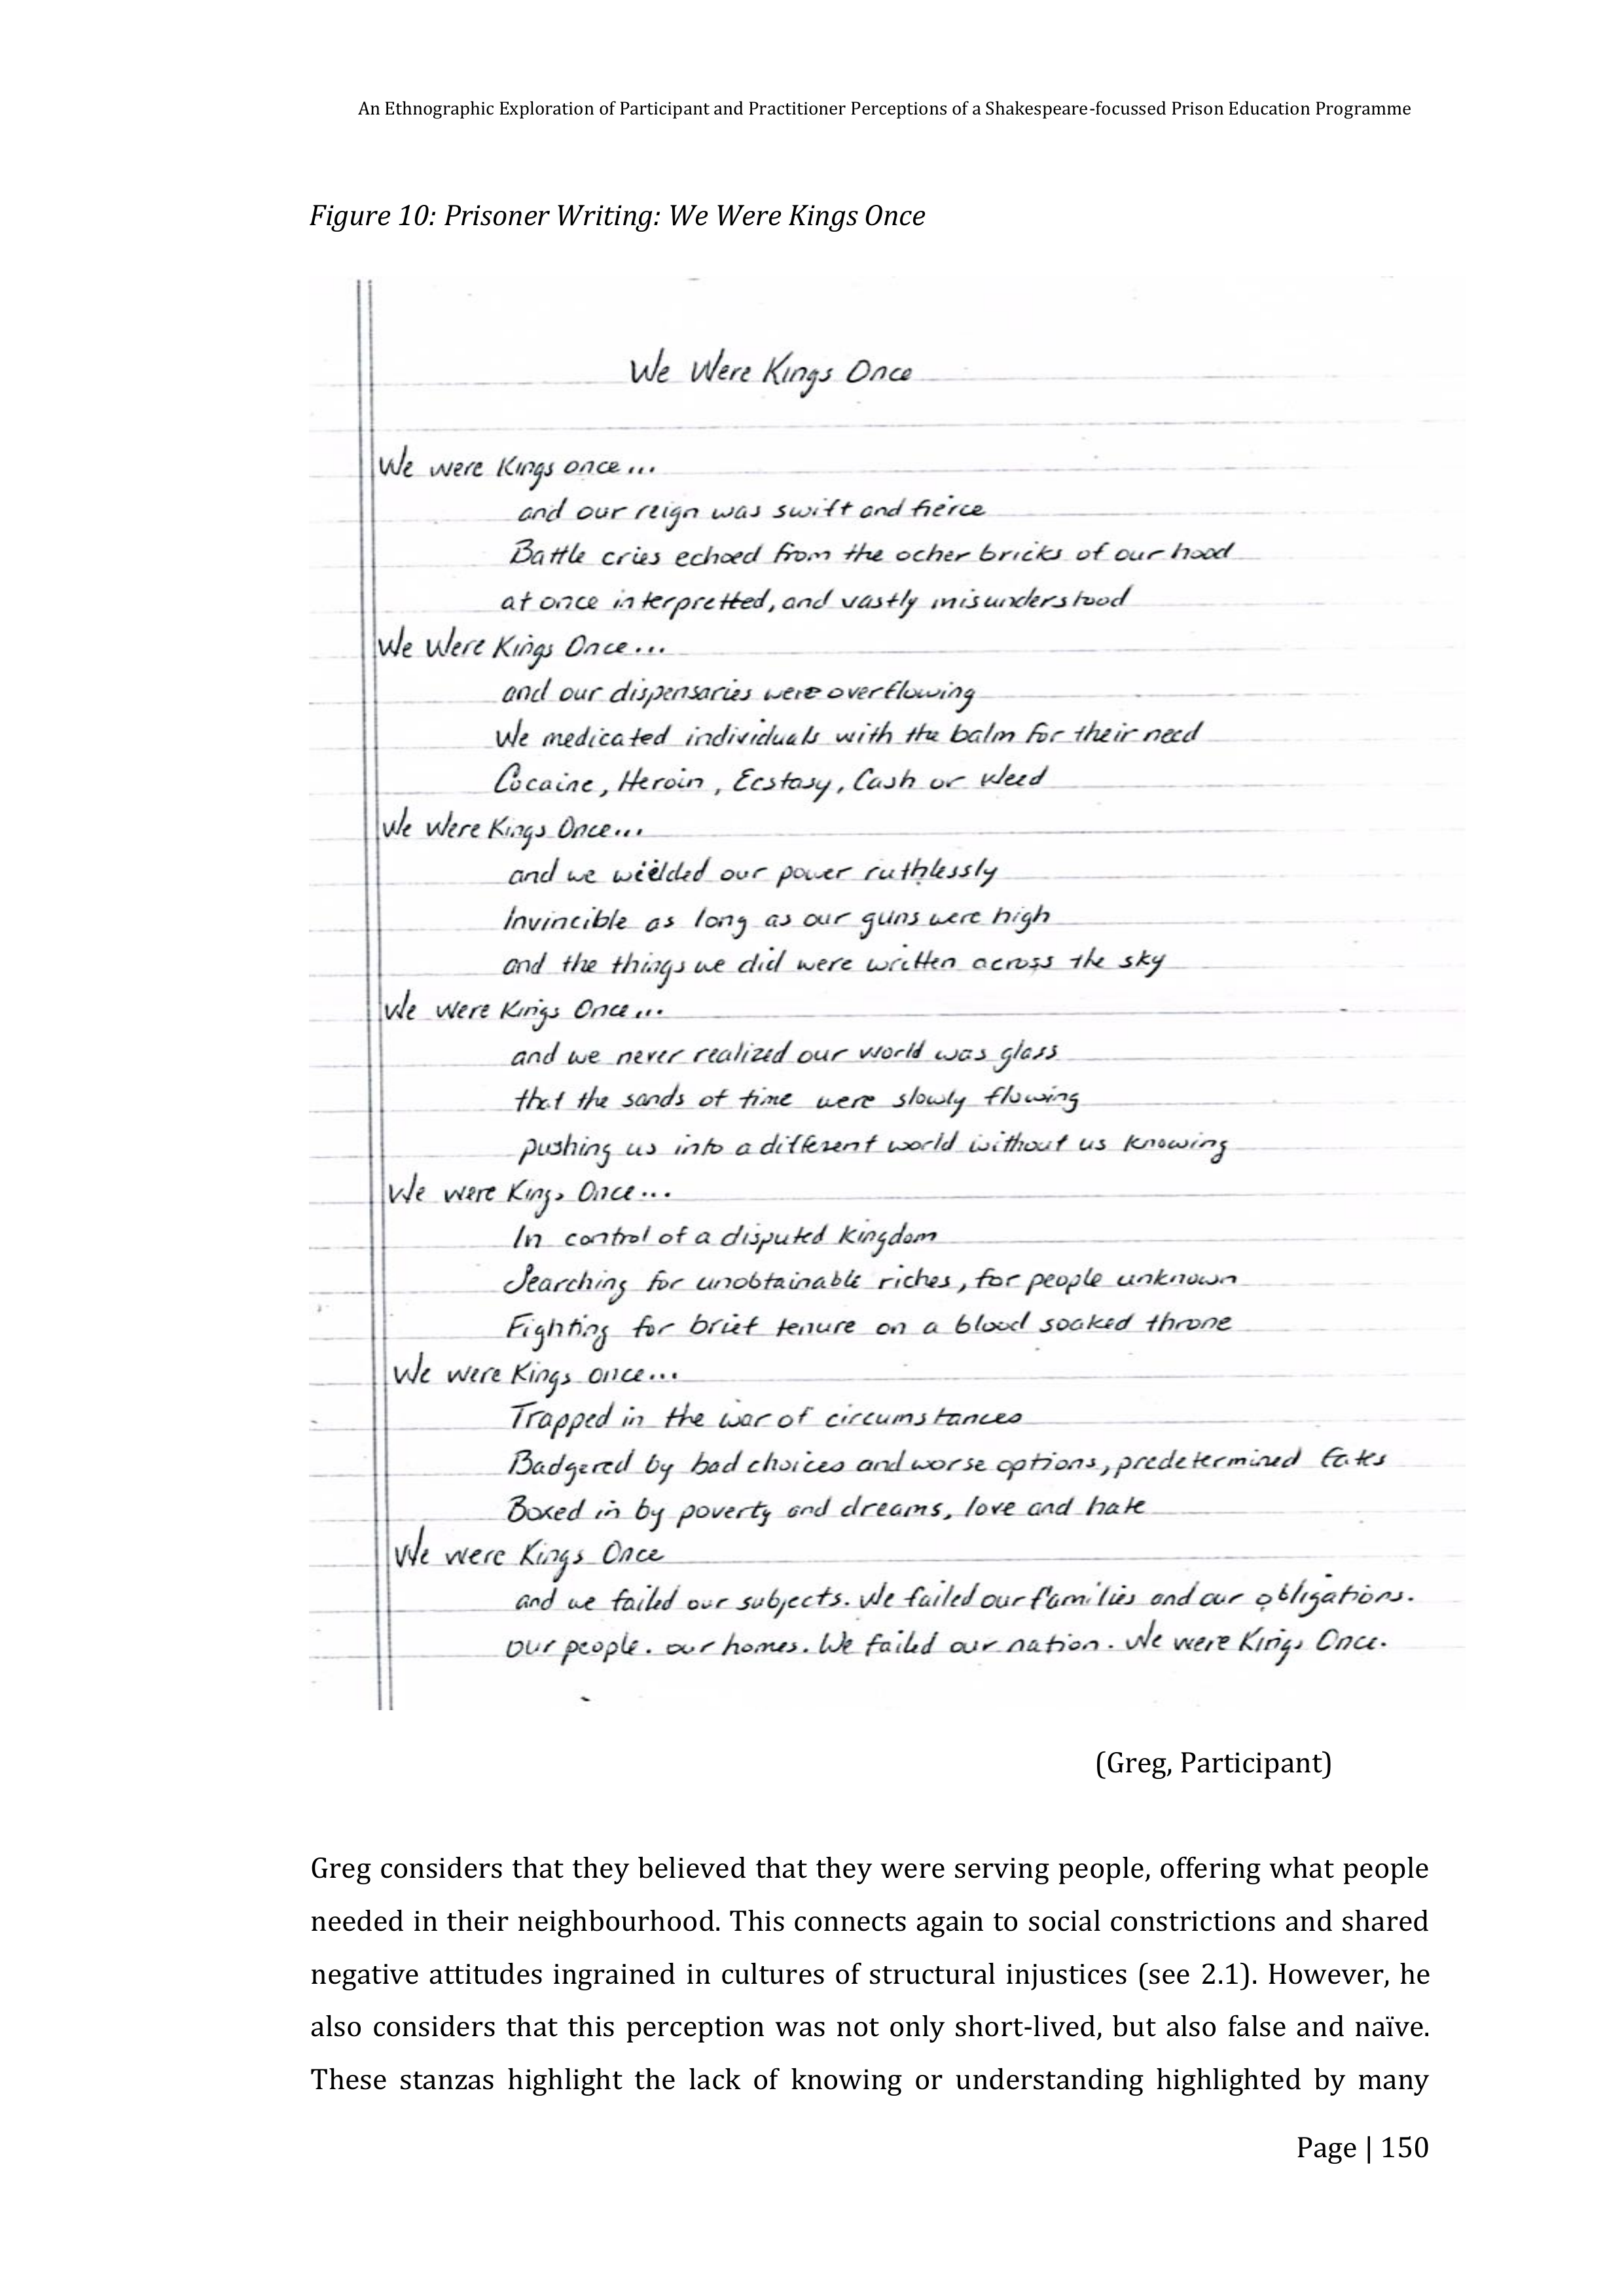 An Ethnographic Exploration of Participant and Practitioner Perceptions of a Shakespeare-focussed Prison Education Programme
Figure 10: Prisoner Writing: We Were Kings Once
We Were Kings Once
We were Kings once...
and our reign was swift and fierce
Battle cries echoed from the ocher bricks of our hood
at once interpretted, and vastly misunderstood
We Were Kings Once...
and our dispensaries were overflowing
We medicated individuals with the balm for their need
Cocaine, Heroin, Ecstasy, Cash or Weed
We Were Kings Once...
and we wielded our power ruthlessly
Invincible as long as our guns were high
and the things we did were written across the sky
We Were Kings Once...
and we never realized our world was glass
that the sands of time were slowly flowing
pushing us into a different world without us knowing
We were Kings Once...
In control of a disputed kingdom
Searching for unobtainable riches, for people unknown
Fighting for brief tenure on a blood soaked throne
We were Kings once...
Trapped in the war of circumstances
Badgered by bad choices and worse options, predetermined fates
Boxed in by poverty and dreams, love and hate
We were Kings Once
and we failed our subjects. We failed our families and our obligations.
our people. our homes. We failed our nation. We were Kings Once.
(Greg, Participant)
Greg considers that they believed that they were serving people, offering what people
needed in their neighbourhood. This connects again to social constrictions and shared
negative attitudes ingrained in cultures of structural injustices (see 2.1). However, he
also considers that this perception was not only short-lived, but also false and naïve.
These stanzas highlight the lack of knowing or understanding highlighted by many
Page | 150